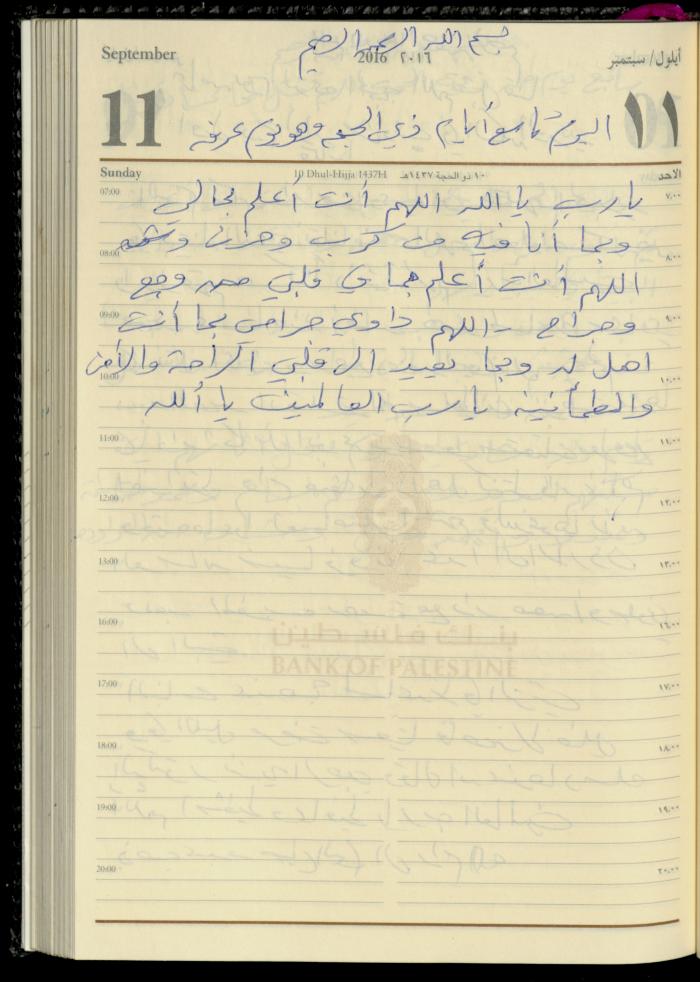 بسم الله الرحمن الرحيم
September 2016 ٢٠١٦ أيلول/ سبتمبر
11 اليوم تاسع أيام ذي الحجة وهو يوم عرفه ١١
Sunday 10 Dhul-Hijja 1437H ١٠ ذو الحجة ١٤٣٧هـ الاحد
07:00 يارب يا الله اللهم أنت أعلم بحالي ٧:٠٠
وبما أنا فيه من كرب وحزن
08:00 ٨:٠٠
اللهم أنت أعلم بما في قلبي من وجع
09:00 وجراح اللهم داوي جراحي بما أنت ٩:٠٠
اهل له وبما يعيد الى قلبي الراحة والأمن
10:00 ١٠:٠٠
والطمأنينه يا رب العالمين يا ألله
11:00 ١١:٠٠
12:00 ١٢:٠٠
13:00 ١٣:٠٠
16:00 ١٦:٠٠
بنك فلسطين
BANK OF PALESTINE
17:00 ١٧:٠٠
18:00 ١٨:٠٠
19:00 ١٩:٠٠
20:00 ٢٠:٠٠